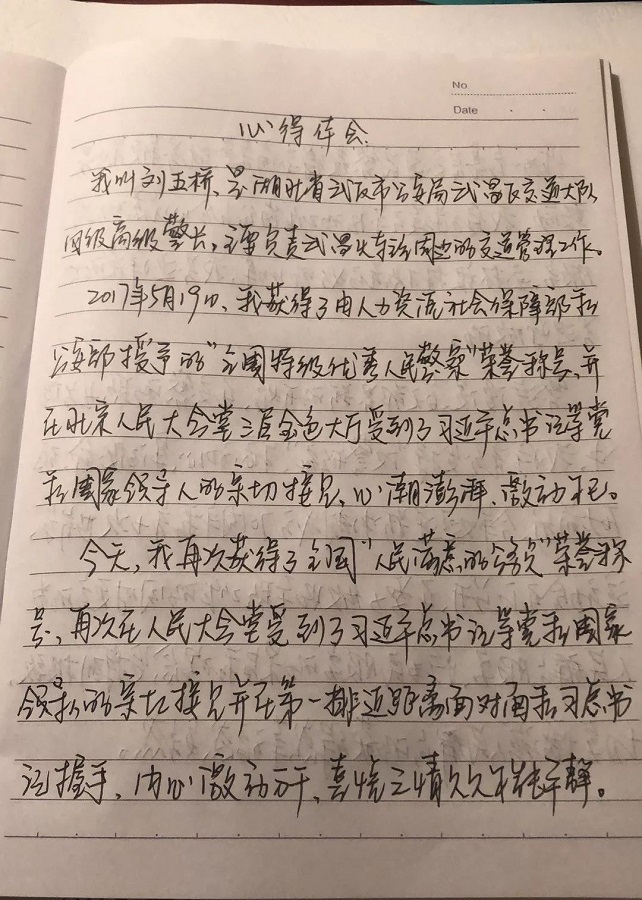 No
Date
心得体会
我叫刘五桥,是湖北省武汉市公安局武昌区交通大队
四级高级警长,主要负责武昌火车站周边的交通管理工作。
2017年5月19日,我获得了由人力资源社会保障部和
公安部授予的"全国特级优秀人民警察"荣誉称号,并
在北京人民大会堂三层金色大厅受到了习近平总书记等党
和国家领导人的亲切接见,心潮澎湃,激动不已。
今天,我再次获得了全国"人民满意的公务员"荣誉称
号,再次在人民大会堂受到了习近平总书记等党和国家
领导人的亲切接见并在第一排近距离面对面和习总书
记握手,内心激动万千,喜悦之情久久不能平静。